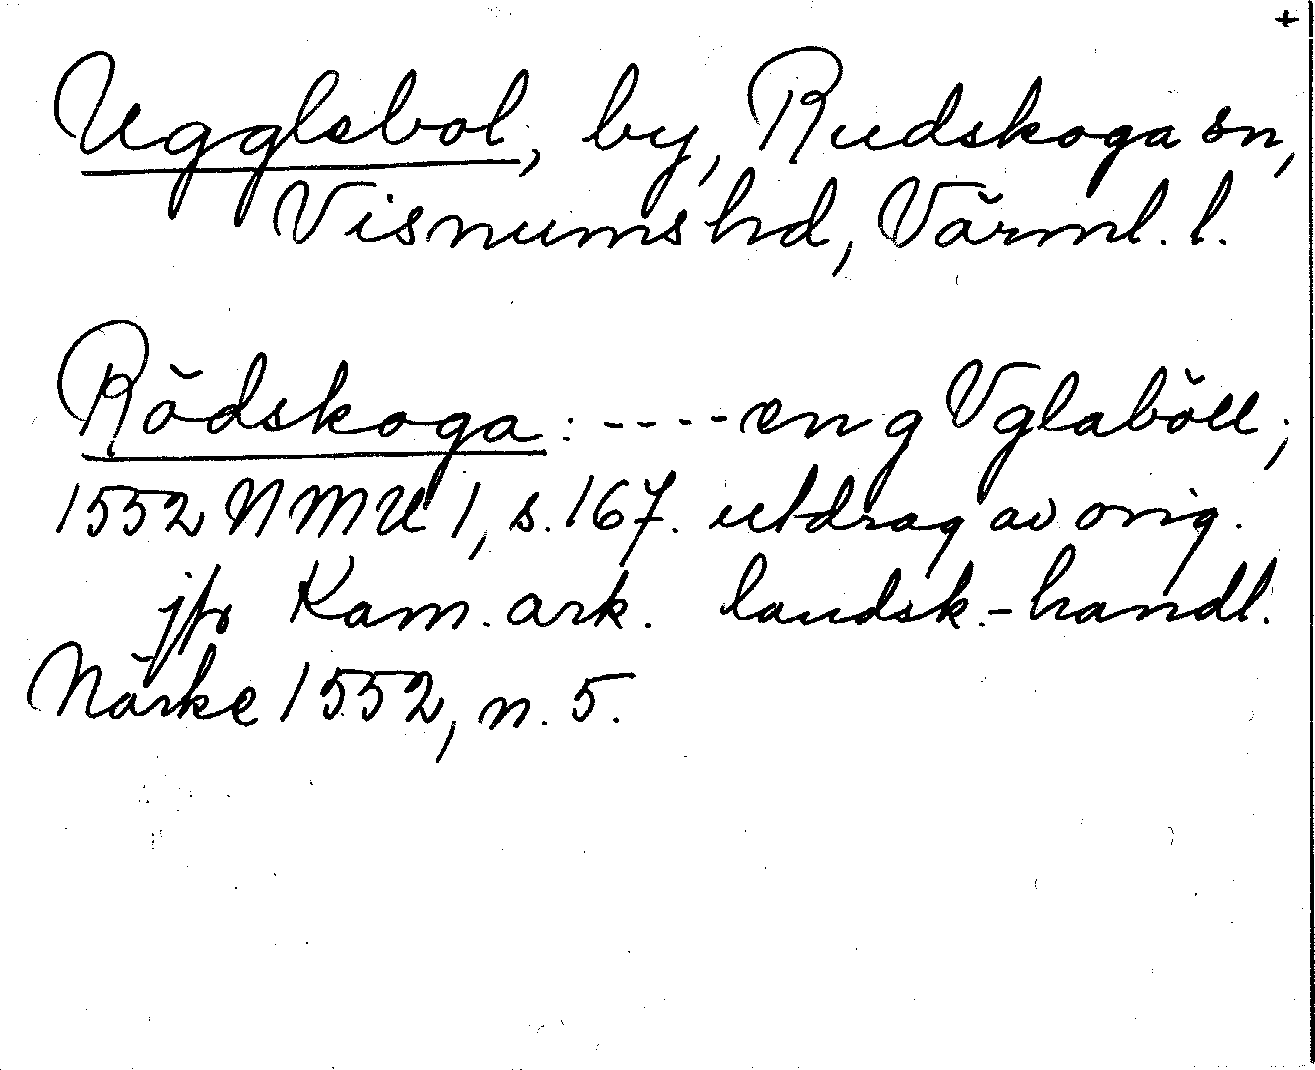 +
Ugglebol, by, Rudskoga sn,
Visnums hd, Värml. l.
Rödskoga: ----- eng Vglaböll;
1552 NMU 1, s. 167. utdrag av orig.
jfr Kam. ark. landsk.-handl.
Närke 1552, n. 5.